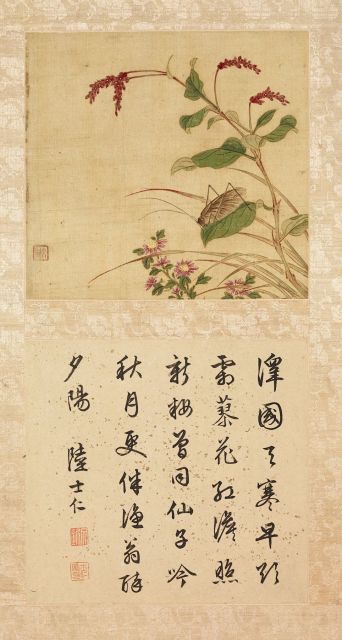 澤國天寒早
霜蓼花紅澹照
新粧曾同仙子吟
秋月更伴漁翁醉
夕陽 陸士仁